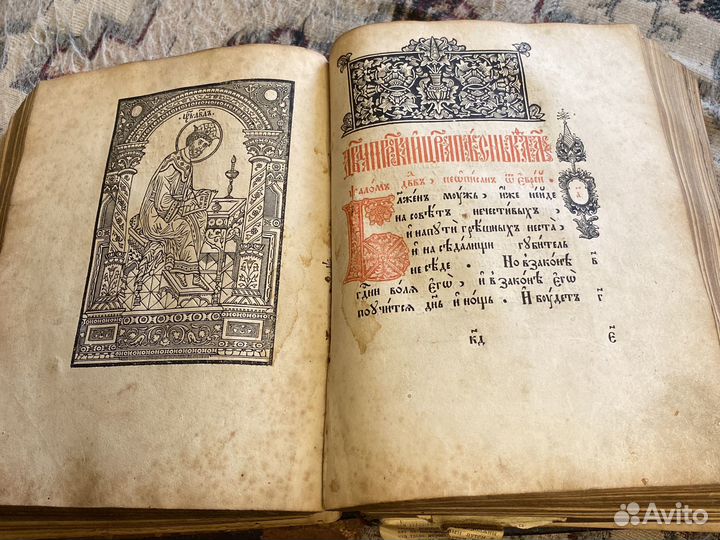 ЦР҃Ь ДВ҃ДЪ
ѱаломъ дв҃дъ, неѡписанъ ѿ еврей.
Бл҃женъ моужъ, иже неиде
на совѣтъ нечестивыхъ,
и напути грѣшныхъ неста
и на сѣдалищи губитель
не сѣде. Но взаконѣ в҃
гд҃ни волѧ егѡ, и взаконѣ егѡ
поучитсѧ дн҃ь и нощь. И боудетъ г҃
кд є
Avito